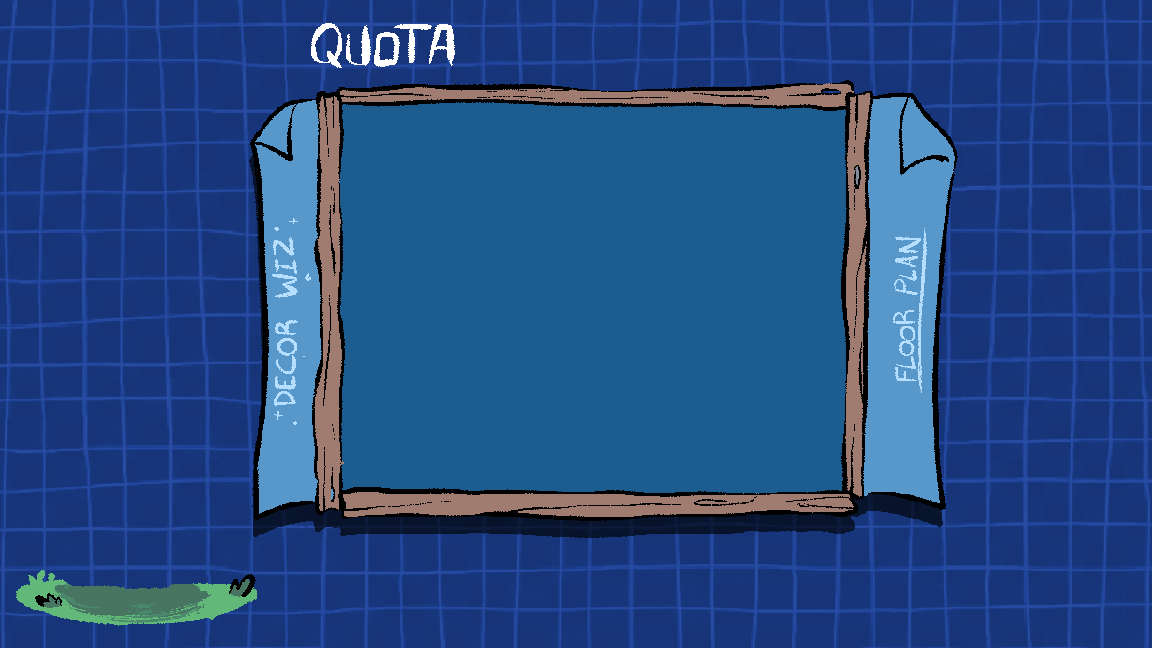 QUOTA
DECOR WIZ
FLOOR PLAN